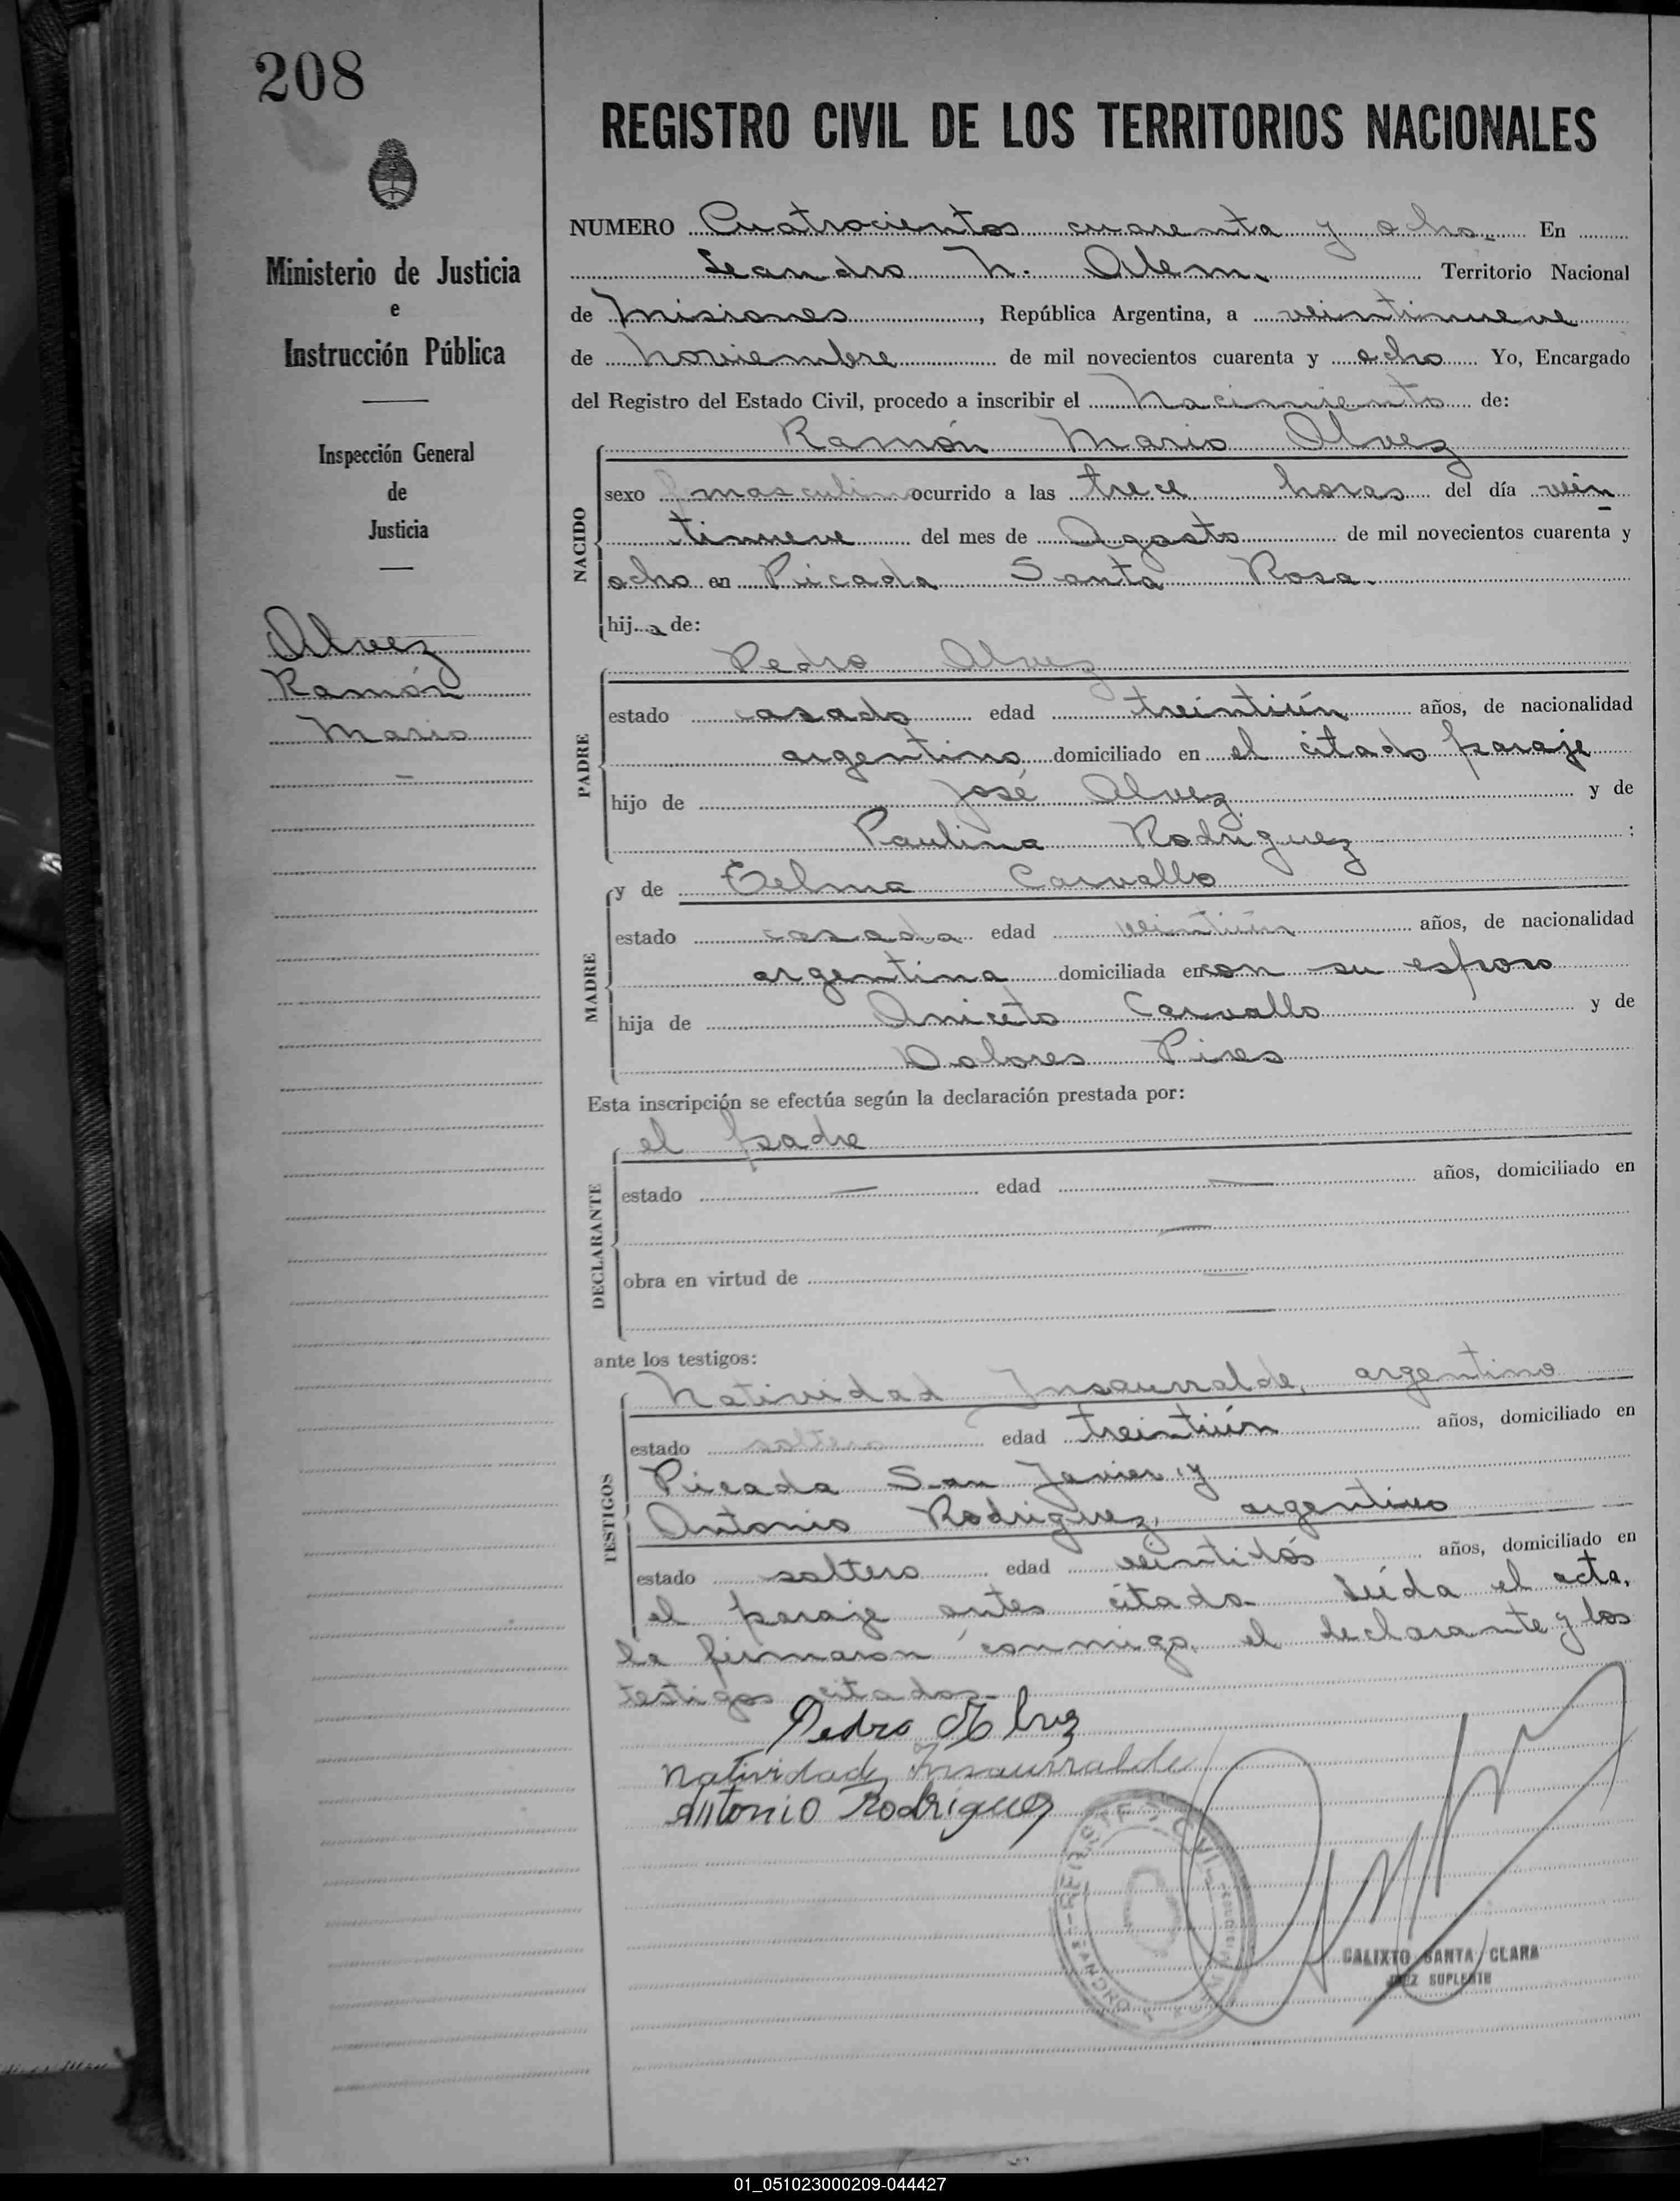 208
REGISTRO CIVIL DE LOS TERRITORIOS NACIONALES
Ministerio de Justicia
e
Instrucción Pública
Inspección General
de
Justicia
Alvez
Ramón
Mario
NUMERO Cuatrocientos cuarenta y ocho.- En
Leandro N. Alem. Territorio Nacional
de Misiones, República Argentina, a veintinueve
de Noviembre de mil novecientos cuarenta y ocho Yo, Encargado
del Registro del Estado Civil, procedo a inscribir el Nacimiento de:
Ramón Mario Alvez
NACIDO
sexo masculino ocurrido a las trece horas del día vein
tinueve del mes de Agosto de mil novecientos cuarenta y
ocho en Picada Santa Rosa.
hijo de:
Pedro Alvez
PADRE
estado casado edad treintiún años, de nacionalidad
argentino domiciliado en el citado paraje
hijo de José Alvez y de
Paulina Rodriguez ;
y de Telma Carvallo
MADRE
estado casada edad veintiún años, de nacionalidad
argentina domiciliada en con su esposo
hija de Aniceto Carvallo y de
Dolores Pires
Esta inscripción se efectúa según la declaración prestada por:
el padre
DECLARANTE
estado — edad — años, domiciliado en
—
obra en virtud de —
—
ante los testigos:
Natividad Insaurralde, argentino
TESTIGOS
estado soltero edad treintiún años, domiciliado en
Picada San Javier y
Antonio Rodriguez, argentino
estado soltero edad veintidós años, domiciliado en
el paraje antes citado. Leída el acta,
la firmaron conmigo, el declarante y los
testigos citados.-
Pedro Alvez
Natividad Insaurralde
Antonio Rodriguez
REGISTRO CIVIL
CALIXTO SANTA CLARA
JUEZ SUPLENTE
01_051023000209-044427